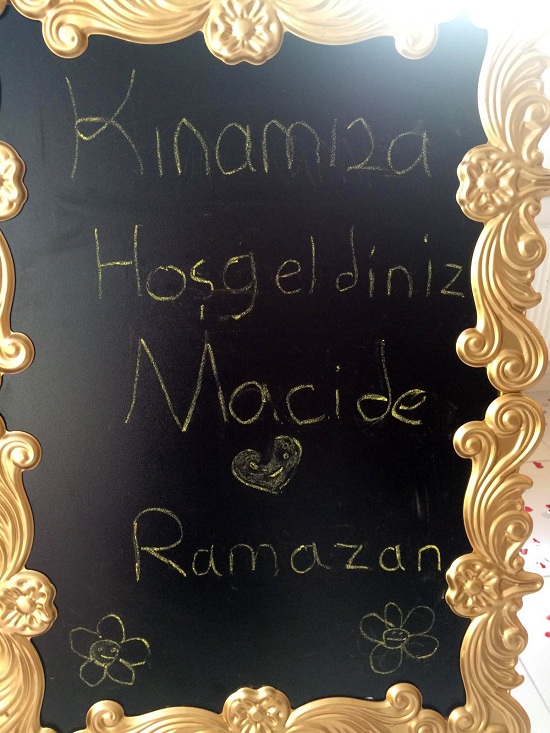 Kınamıza
Hoşgeldiniz
Macide
Ramazan